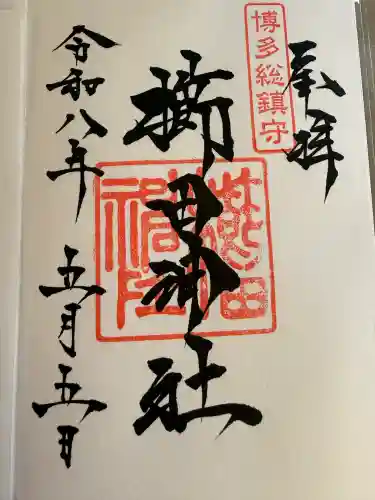 奉拝
博多総鎮守
櫛田神社
令和八年 五月五日